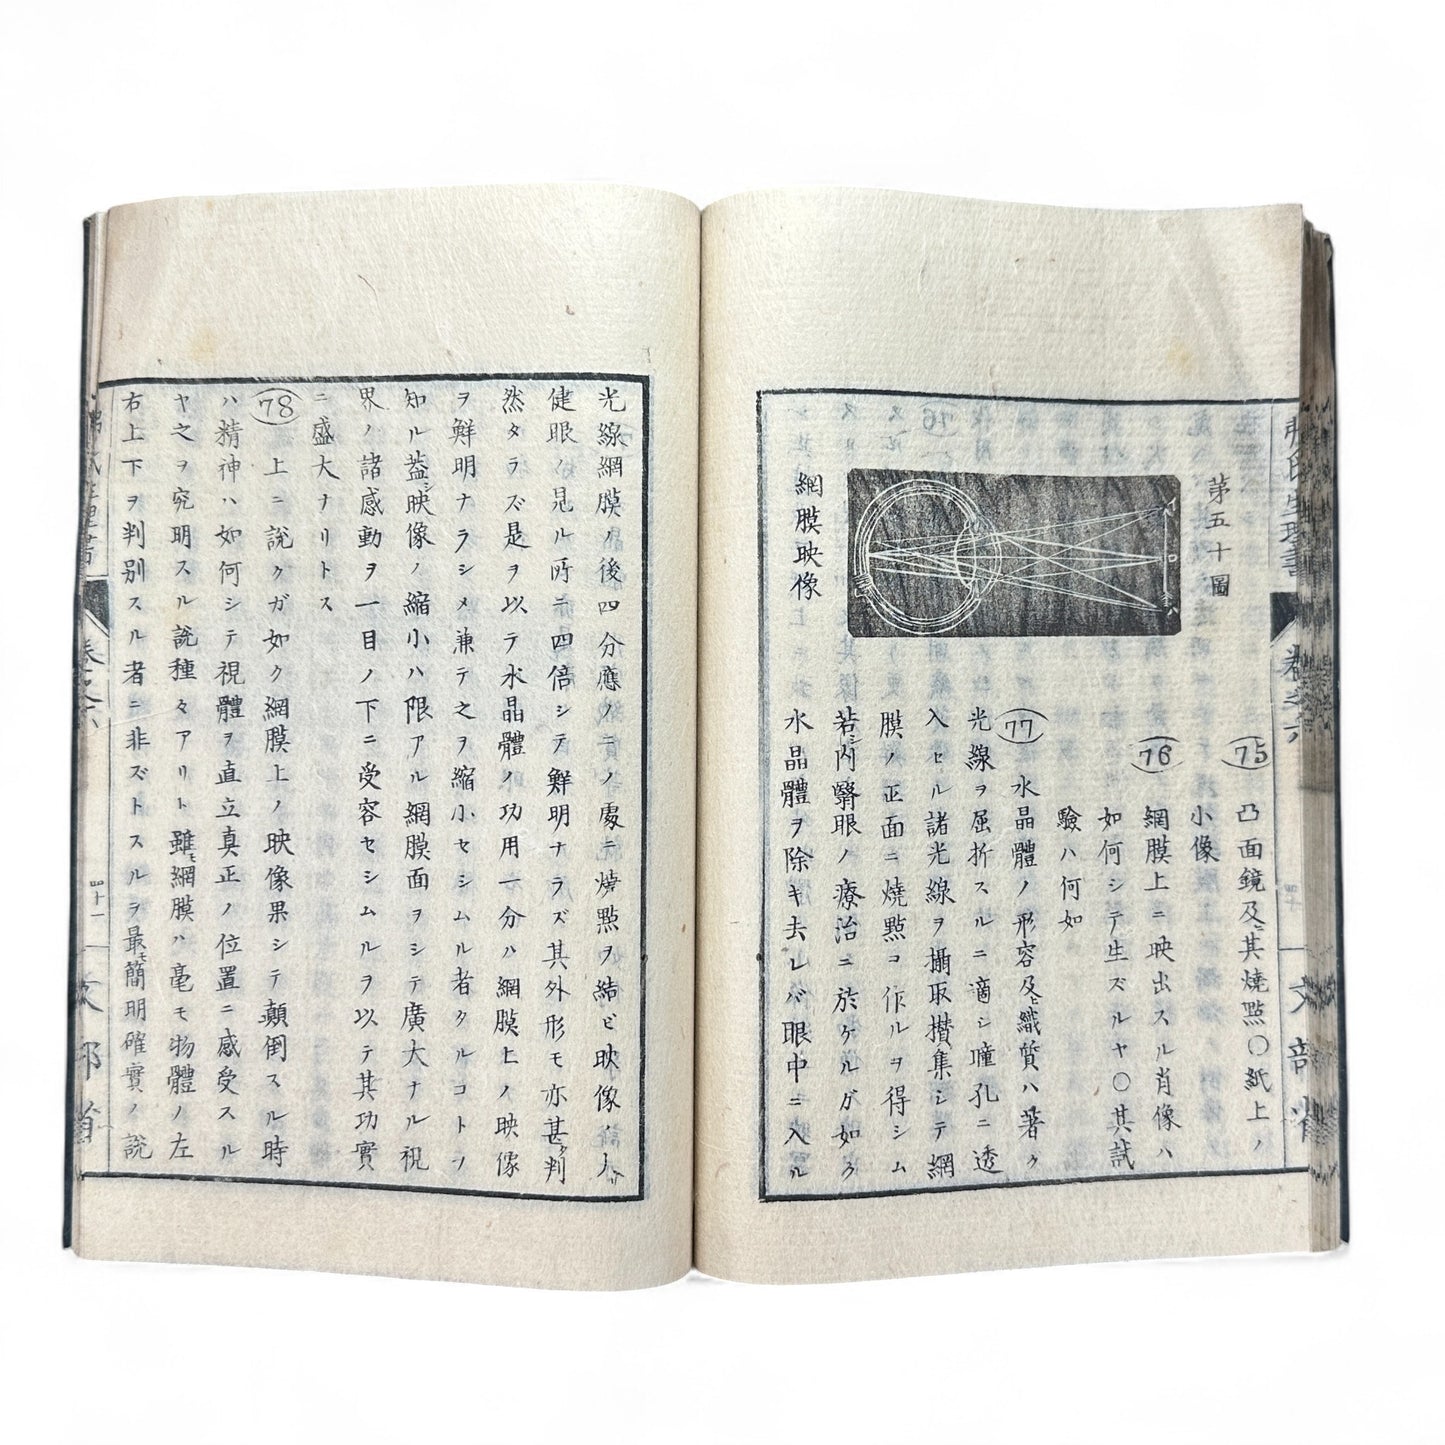 第五十圖
網膜映像
(75) 凸面鏡及ビ其燒點〇紙上ノ
小像
(76) 網膜上ニ映出スル肖像ハ
如何シテ生ズルヤ〇其試
驗ハ何如
(77) 水晶體ノ形容及ビ織質ハ著ク
光線ヲ屈折スルニ適シ瞳孔ニ透
入セル諸光線ヲ攝取攅集シテ網
膜ノ正面ニ燒點ヲ作ルヲ得シム
若シ内翳眼ノ療治ニ於ケルガ如ク
水晶體ヲ除キ去レバ眼中ニ入ル
光線網膜ノ後四分應ノ二ノ處ニ燒點ヲ結ビ映像ノ大
健眼ノ見ル所ニ四倍シテ鮮明ナラズ其外形モ亦甚ダ判
然タラズ是ヲ以テ水晶體ノ功用一分ハ網膜上ノ映像
ヲ鮮明ナラシメ兼テ之ヲ縮小セシムル者タルコトヲ
知ル蓋シ映像ノ縮小ハ限アル網膜面ヲシテ廣大ナル視
界ノ諸感動ヲ一目ノ下ニ受容セシムルヲ以テ其功實
ニ盛大ナリトス
(78) 上ニ說クガ如ク網膜上ノ映像果シテ顛倒スル時
ハ精神ハ如何シテ視體ヲ直立真正ノ位置ニ感受スル
ヤ之ヲ究明スル說種々アリト雖モ網膜ハ毫モ物體ノ左
右上下ヲ判別スル者ニ非ズトスルヲ最モ簡明確實ノ說
卷之六
四十一
文部省